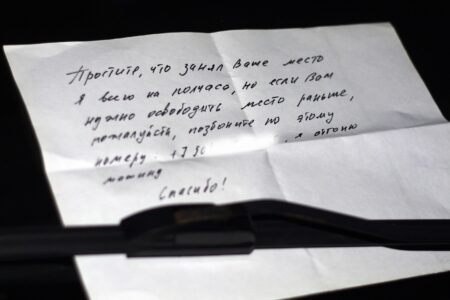 Простите, что занял Ваше место
Я всего на полчаса, но если Вам
нужно освободить место раньше,
пожалуйста, позвоните по этому
номеру: +7 90 я отгоню
машину
Спасибо!